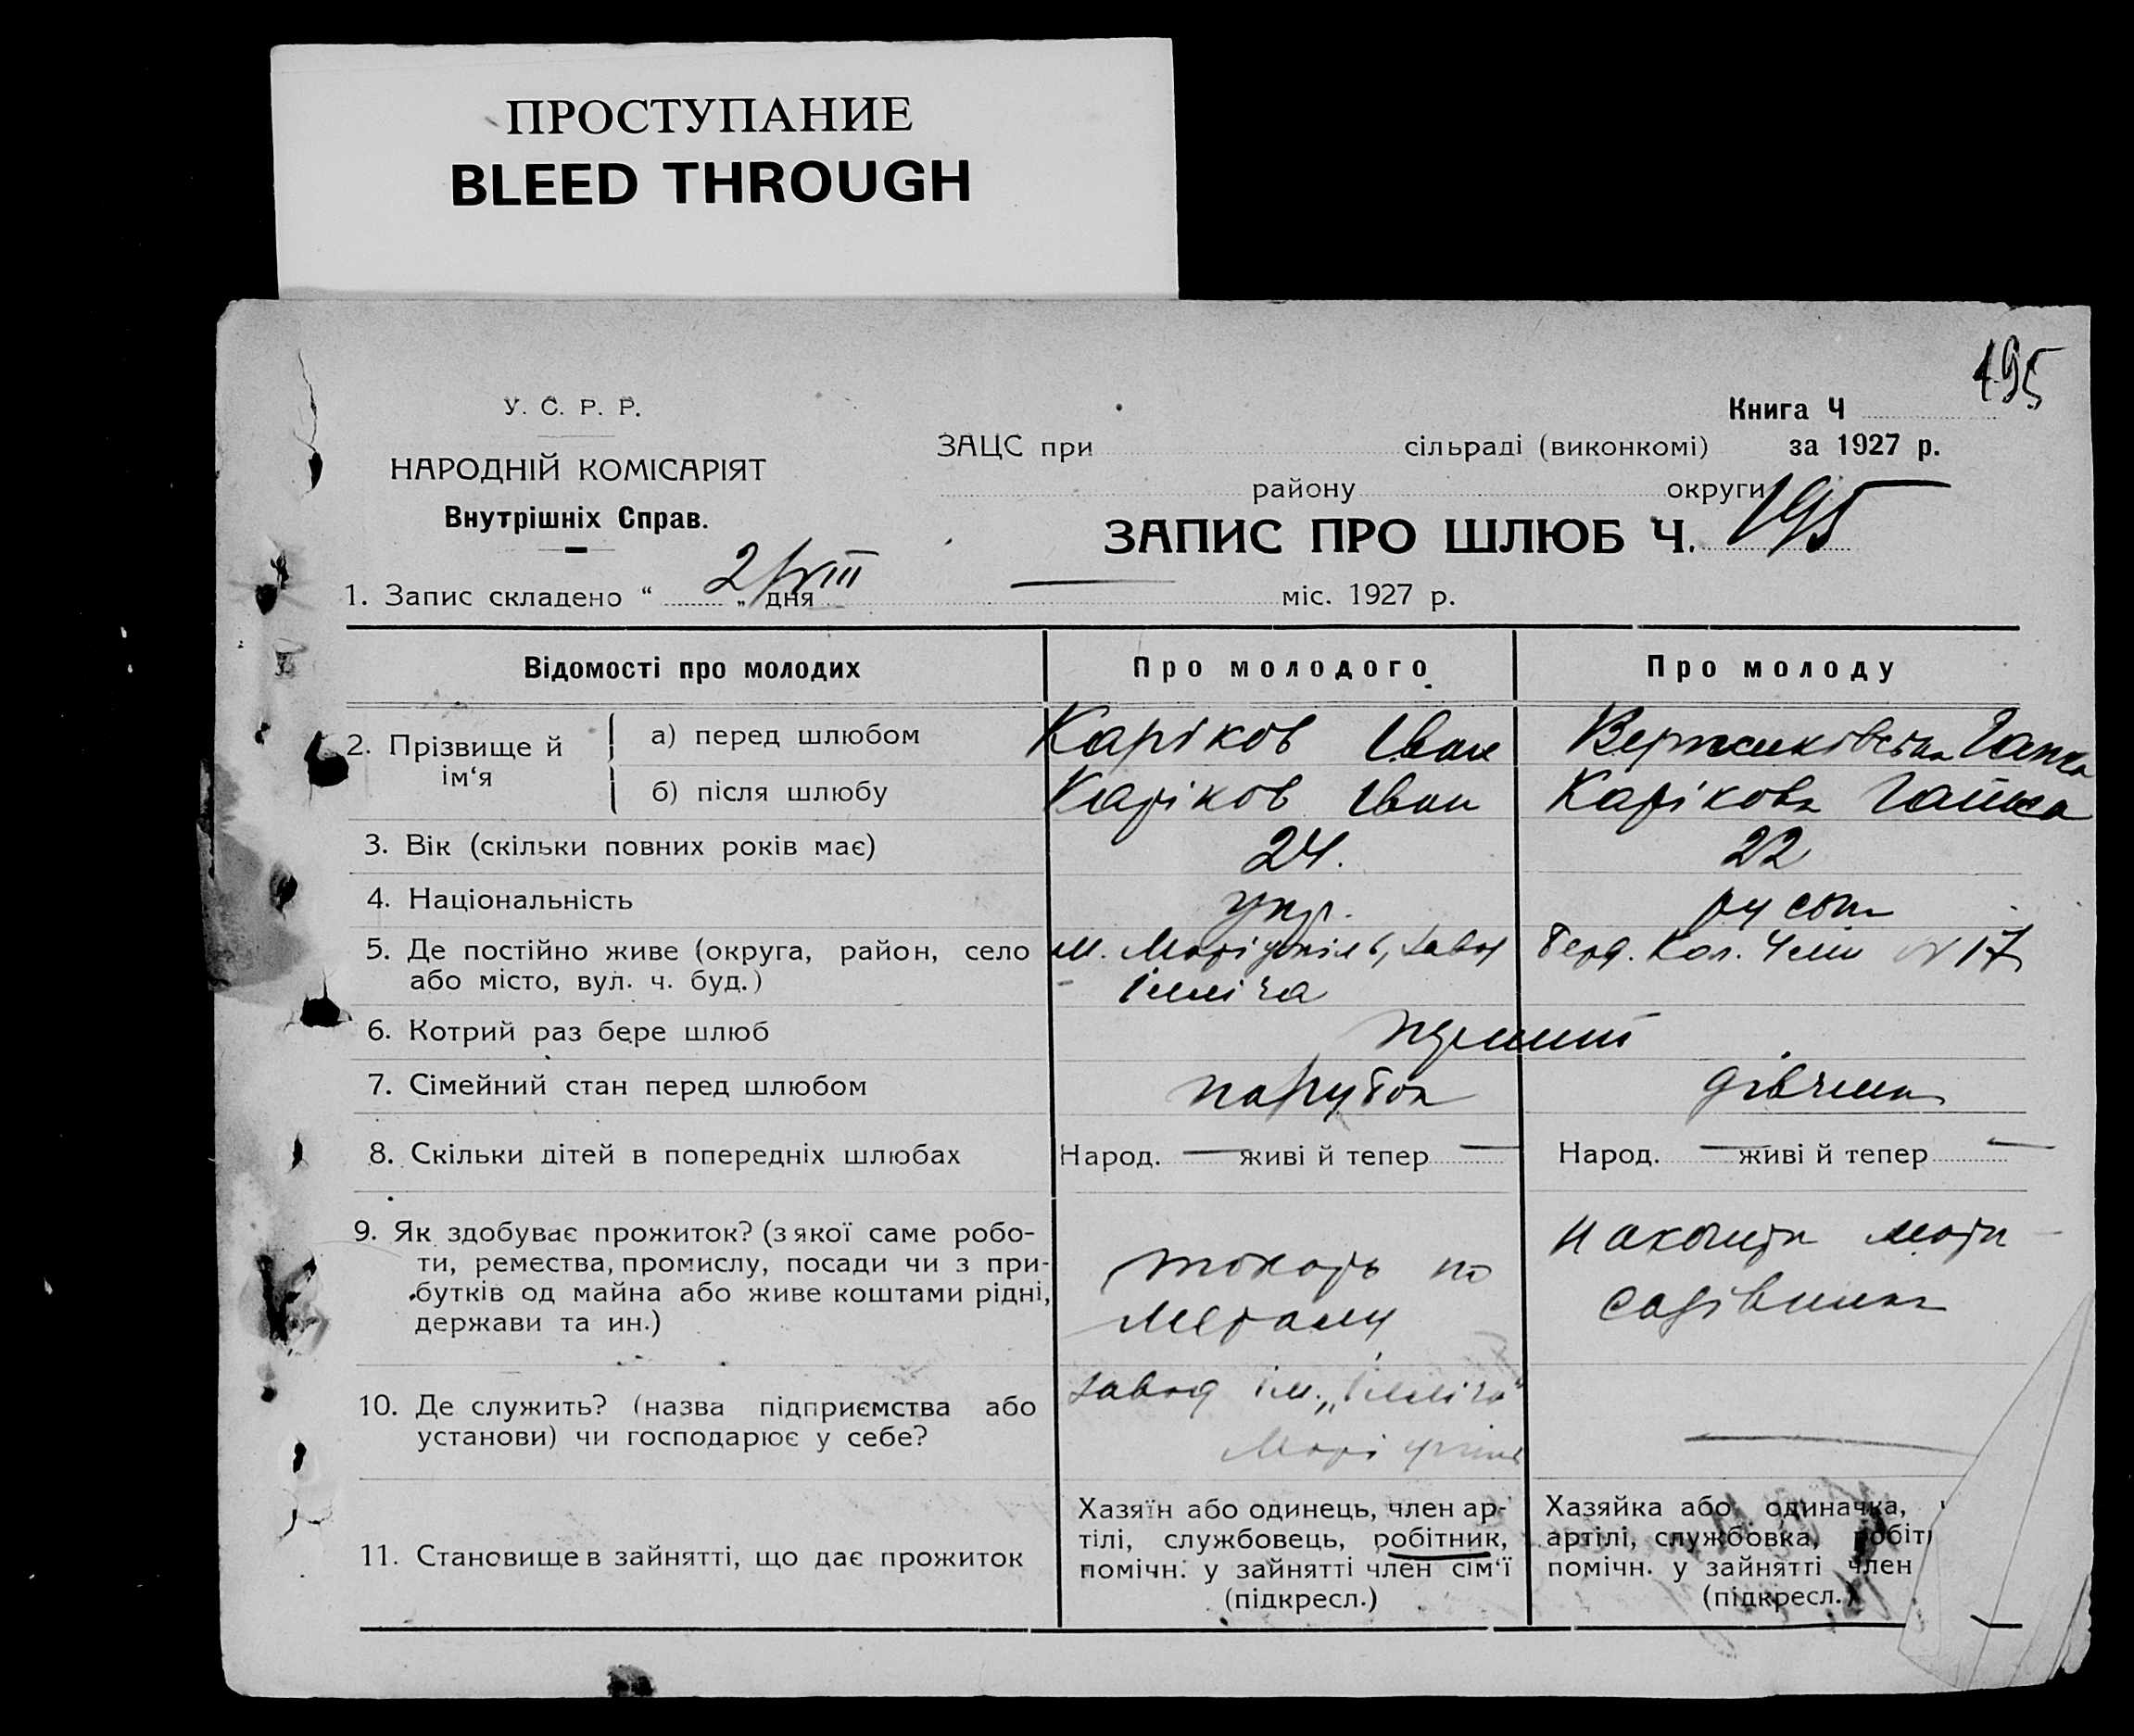 ПРОСТУПАНИЕ
BLEED THROUGH
195
У. С. Р. Р.
НАРОДНІЙ КОМІСАРІЯТ
Внутрішніх Справ.
Книга Ч
ЗАЦС при сільраді (виконкомі) за 1927 р.
району округи
ЗАПИС ПРО ШЛЮБ Ч. 195
1. Запис складено “ 2/VIII „ дня міс. 1927 р.
Відомості про молодих Про молодого Про молоду
2. Прізвище й ім‘я
а) перед шлюбом Каріков Іван Ганна
б) після шлюбу Каріков Іван Карікова Ганна
3. Вік (скільки повних років має) 24. 22
4. Національність укр. руськ
5. Де постійно живе (округа, район, село м. Маріюпіль, завод Берд. Кол. №17
або місто, вул. ч. буд.) Ілліча
6. Котрий раз бере шлюб перший
7. Сімейний стан перед шлюбом парубок дівчина
8. Скільки дітей в попередніх шлюбах Народ. — живі й тепер — Народ. — живі й тепер —
9. Як здобуває прожиток? (з якої саме робо-
ти, ремества, промислу, посади чи з при-
бутків од майна або живе коштами рідні,
держави та ин.)
токарь по
металу
на кошти мати
10. Де служить? (назва підприємства або
установи) чи господарює у себе?
завод ім. „Ілліча“
Маріюпіль
—
11. Становище в зайнятті, що дає прожиток
Хазяїн або одинець, член ар-
тілі, службовець, робітник,
помічн. у зайнятті член сім‘ї
(підкресл.)
Хазяйка або одиначка,
артілі, службовка, робіт
помічн. у зайнятті член
(підкресл.)